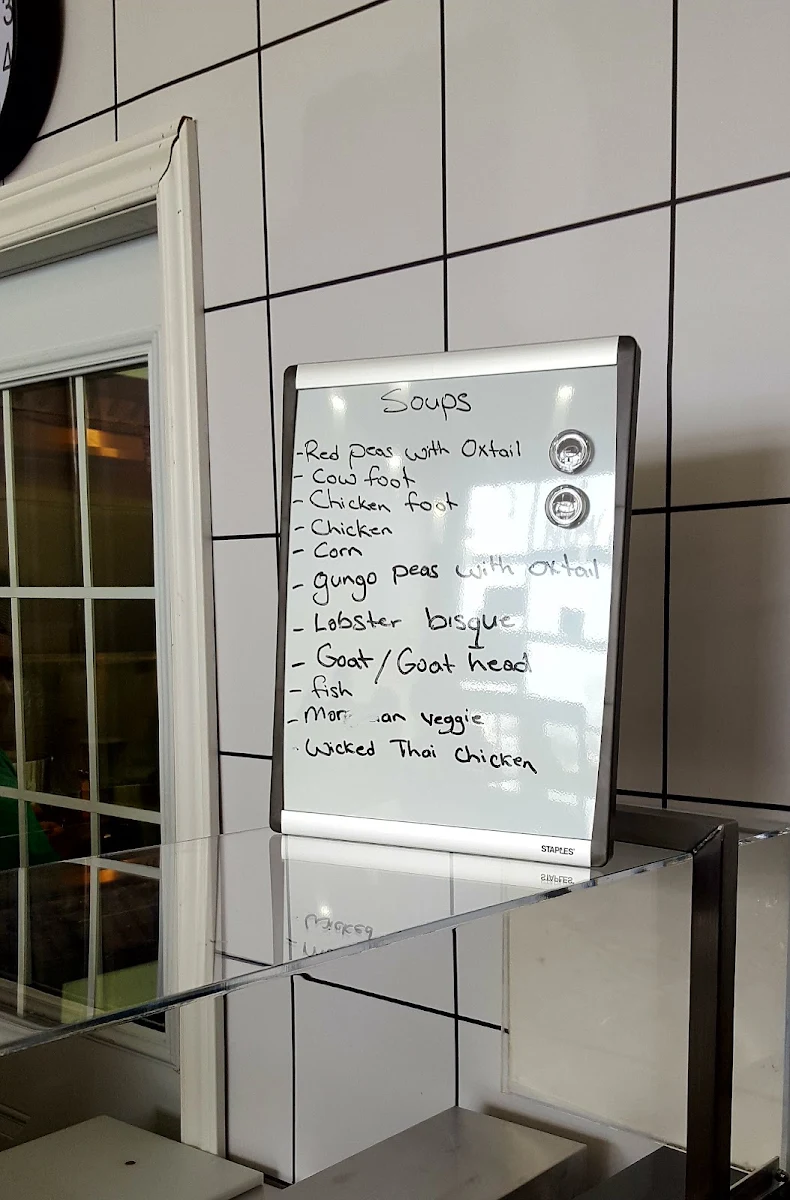 3
4
Soups
-Red peas with Oxtail
- Cow foot
- Chicken foot
- Chicken
- Corn
- gungo peas with oxtail
- Lobster bisque
- Goat/Goat head
- fish
- veggie
- Wicked Thai chicken
STAPLES